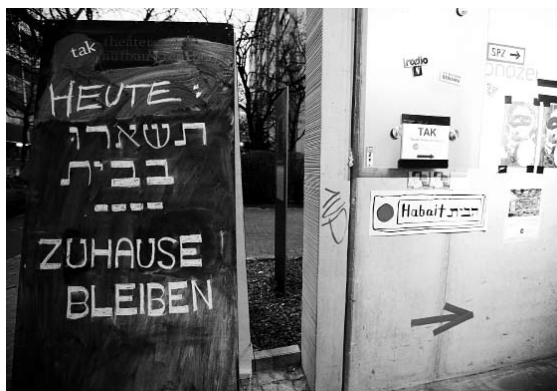 tak theater
aufbau
HEUTE:
תשארו
בבית
ZUHAUSE
BLEIBEN
radio
SPZ →
TAK
Habait הבית